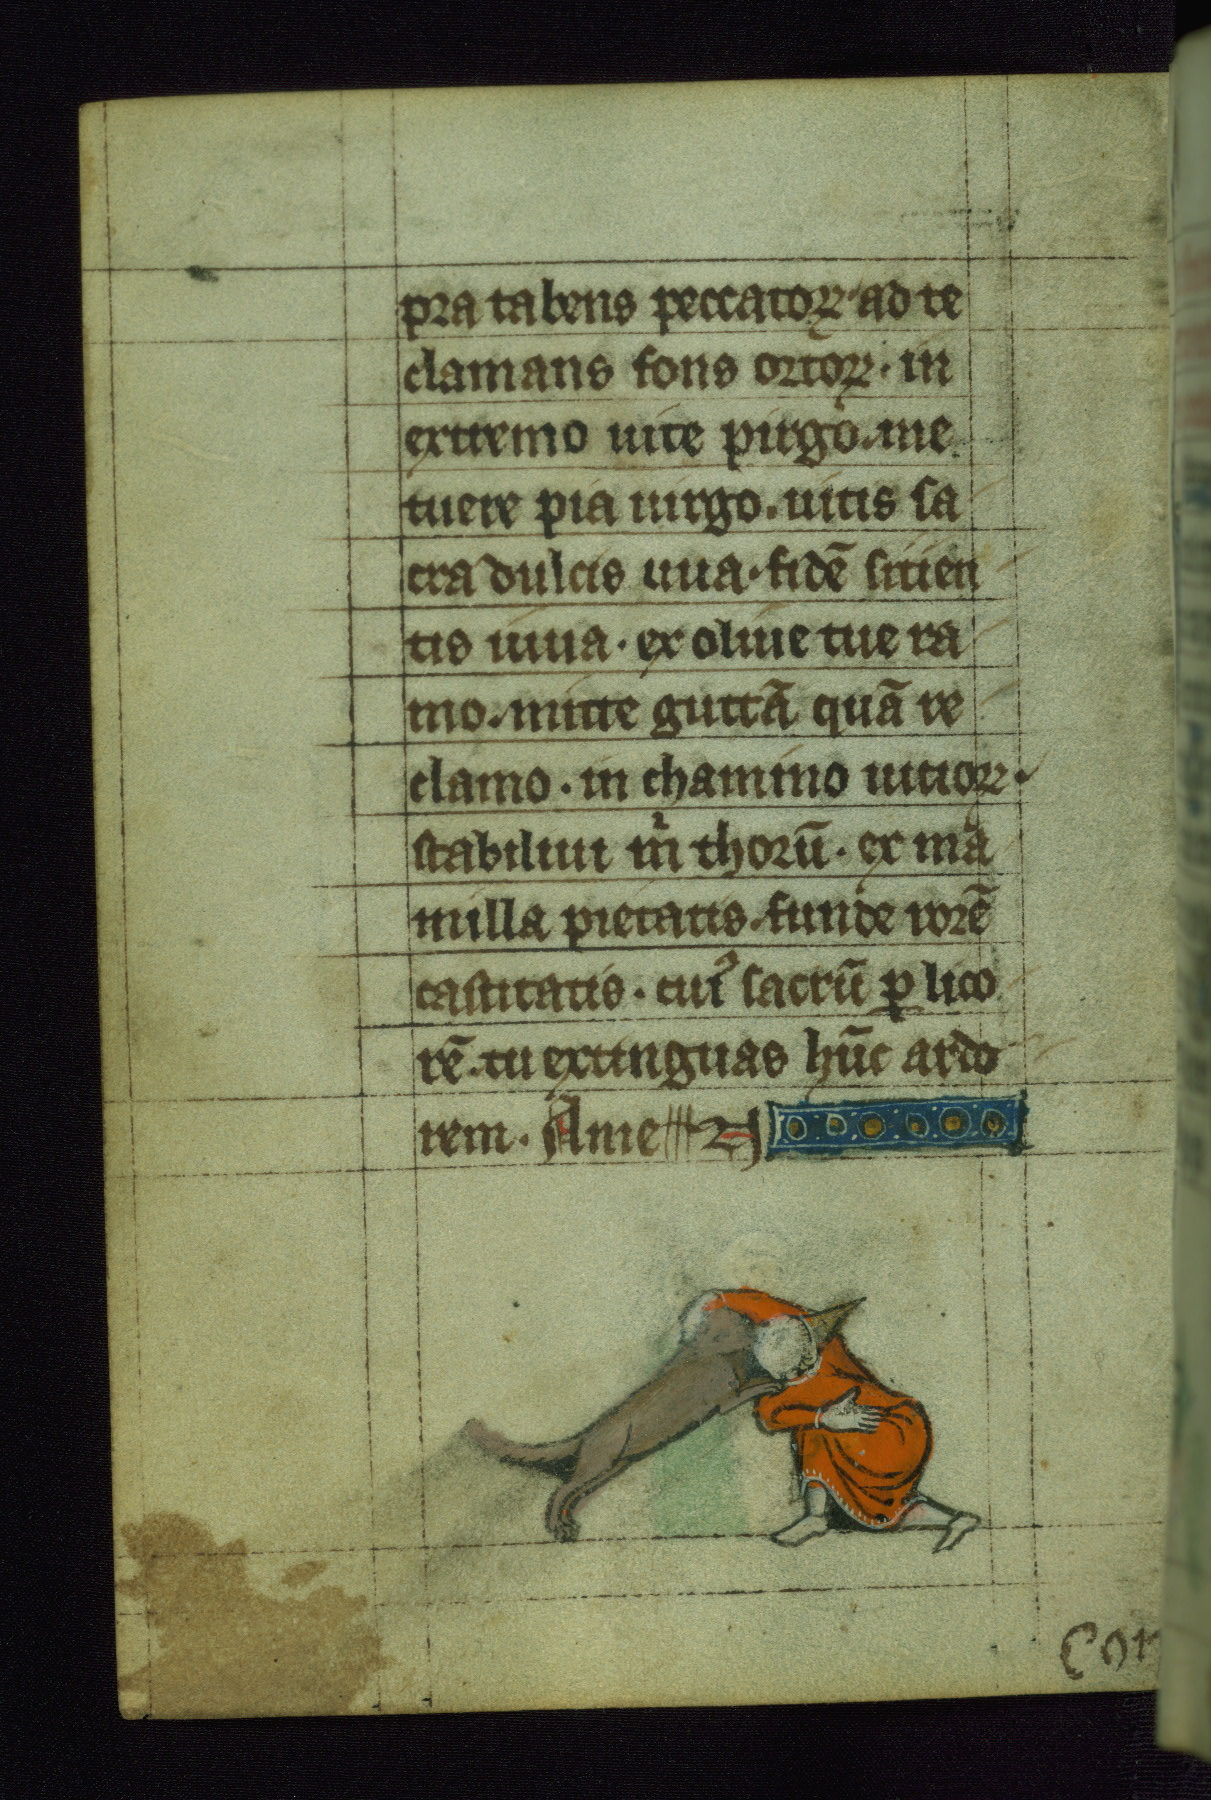 pra tabens peccatoꝝ· ad te
clamans fons ortoꝝ· in
extremo uite pirgo. me
tuere pia uirgo. uitis sa
cra dulcis uua· fidē sitien
tis uiua· ex oliue tue ra
mo. mitte guttā quā re
clamo· in chamino uitioꝝ·
stabiliui m̅ thorū· ex ma
milla pietatis. funde rorē
castitatis· cuiꝰ sacrū ꝑ lico
rē. tu extinguas hūc ardo
rem. Ame
Con